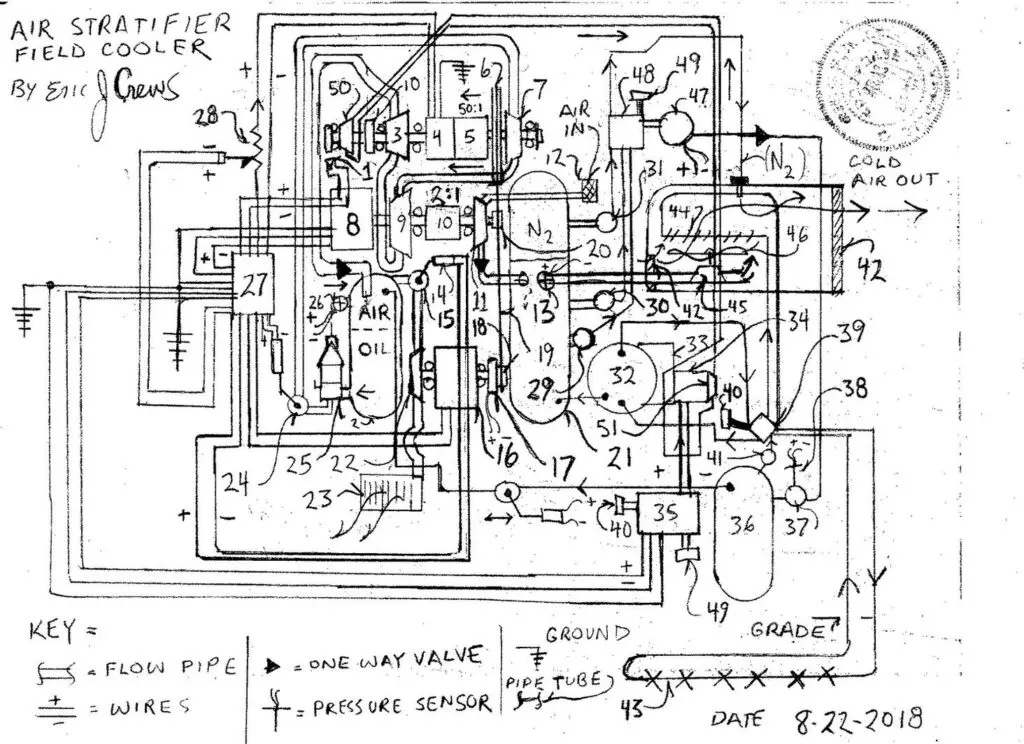 AIR STRATIFIER
FIELD COOLER
BY Eric J Crews
28
+
-
50
10
6
7
50:1
3
4
5
1
AIR IN
12
48
49
47
+ -
31
(N2)
COLD
AIR OUT
2:1
8
9
10
N2
20
44
46
42
27
26
AIR
OIL
14
15
11
13
30
42
45
34
18
19
33
39
29
32
40
38
2
51
41
24
25
22
16
17
21
23
40
35
36
37
49
KEY =
= FLOW PIPE
+
-
= WIRES
= ONE WAY VALVE
= PRESSURE SENSOR
GROUND
PIPE TUBE
GRADE
43
DATE 8-22-2018